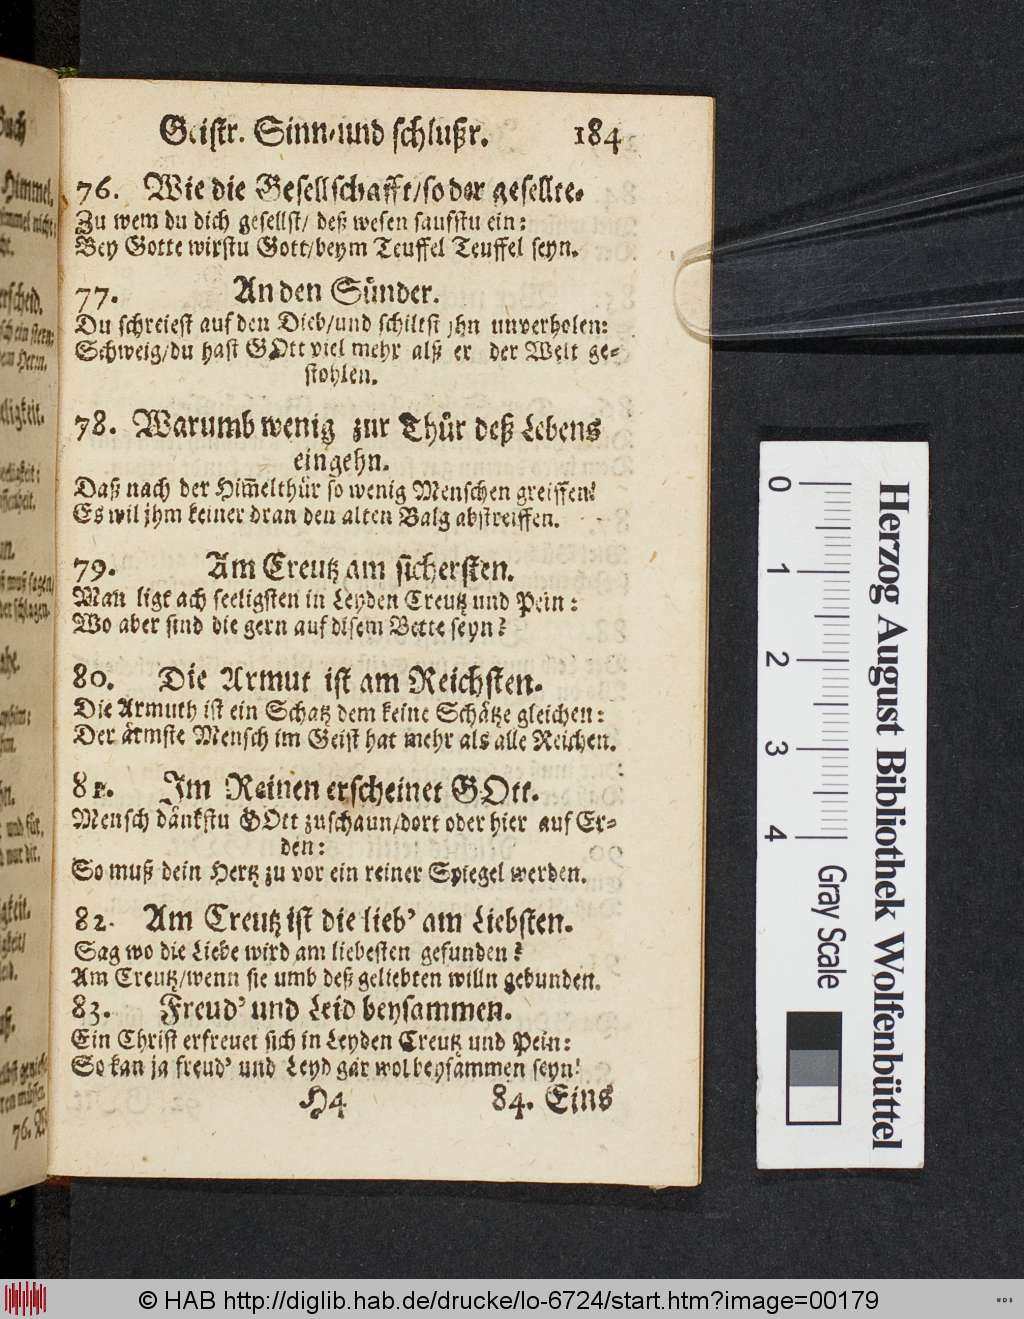 Geistr. Sinn-und schlußr. 184
76. Wie die Gesellschafft/so der gesellte.
Zu wem du dich gesellst/ deß wesen saufstu ein:
Bey Gotte wirstu Gott/beym Teuffel Teuffel seyn.
77. An den Sünder.
Du schreiest auf den Dieb/und schiltst jhn unverholen:
Schweig/du hast GOtt viel mehr alß er der Welt ge-
stohlen.
78. Warumb wenig zur Thür deß Lebens
eingehn.
Daß nach der Him̃elthür so wenig Menschen greiffen!
Es wil jhm keiner dran den alten Balg abstreiffen.
79. Am Creutz am sichersten.
Man ligt am seeligsten in Leyden Creutz und Pein:
Wo aber sind die gern auf disem Bette seyn?
80. Die Armut ist am Reichsten.
Die Armuth ist ein Schatz dem keine Schätze gleichen:
Der ärmste Mensch im Geist hat mehr als alle Reichen.
81. Im Reinen erscheinet GOtt.
Mensch dänkstu GOtt zuschaun/dort oder hier auf Er-
den:
So muß dein Hertz zu vor ein reiner Spiegel werden.
82. Am Creutz ist die lieb' am Liebsten.
Sag wo die Liebe wird am liebesten gefunden?
Am Creutz/wenn sie umb deß geliebten willn gebunden.
83. Freud' und Leid beysammen.
Ein Christ erfreuet sich in Leyden Creutz und Pein:
So kan ja freud' und Leyd gar wol beysammen seyn!
H4 84. Eins
0 1 2 3 4
Gray Scale
Herzog August Bibliothek Wolfenbüttel
© HAB http://diglib.hab.de/drucke/lo-6724/start.htm?image=00179